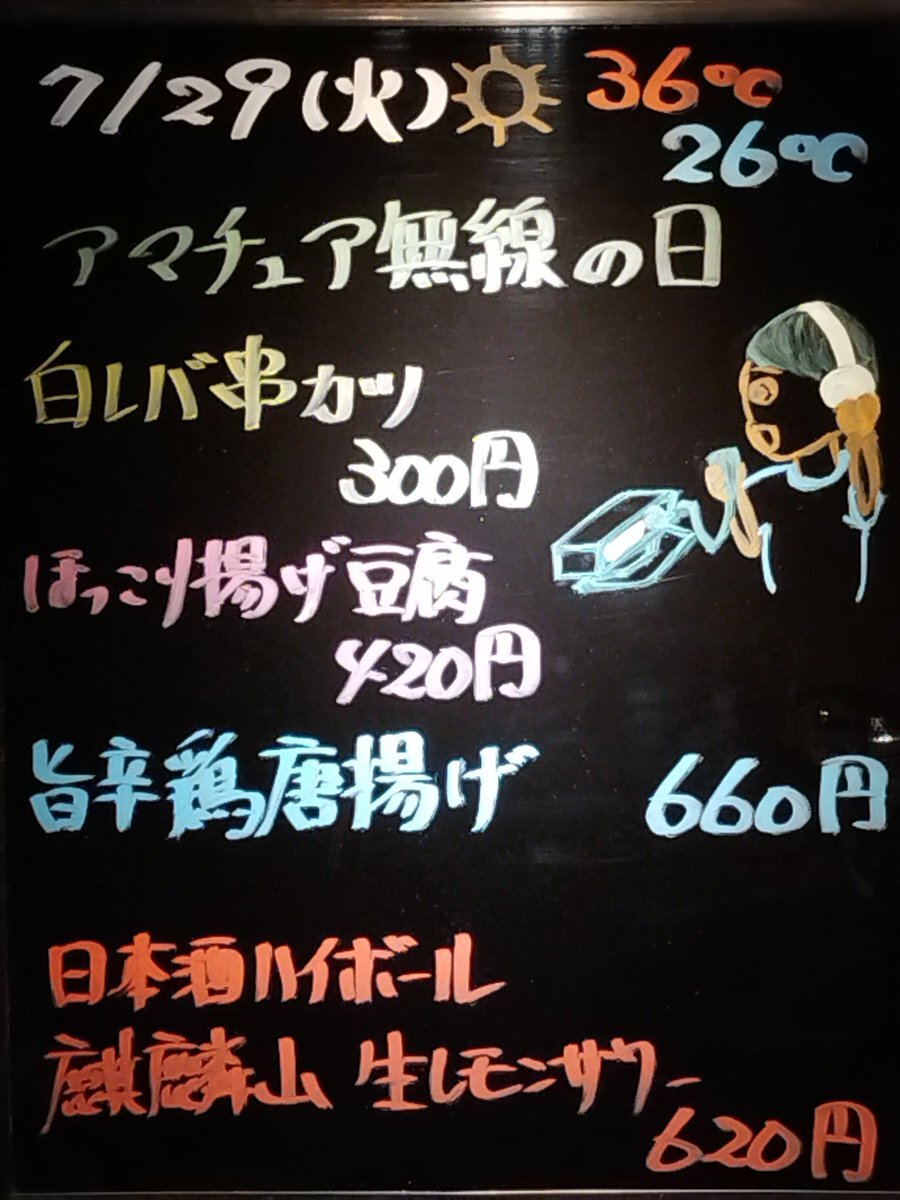 7/29(火) 36℃
26℃
アマチュア無線の日
白レバ串カツ
300円
ほっこり揚げ豆腐
420円
旨辛鶏唐揚げ 660円
日本酒ハイボール
麒麟山 生レモンサワー
620円